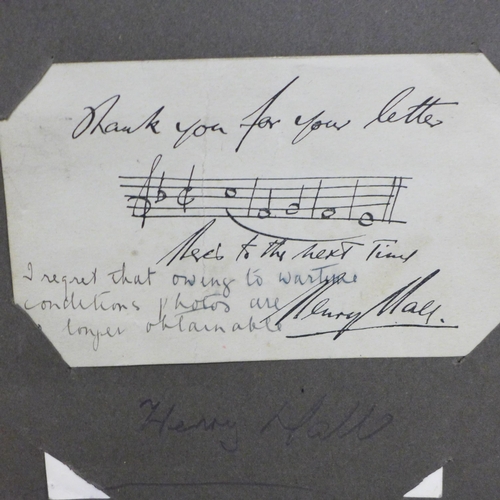 Thank you for your letter
Here's to the next time
I regret that owing to wartime
conditions photos are
longer obtainable
Henry Hall.
Henry Hall